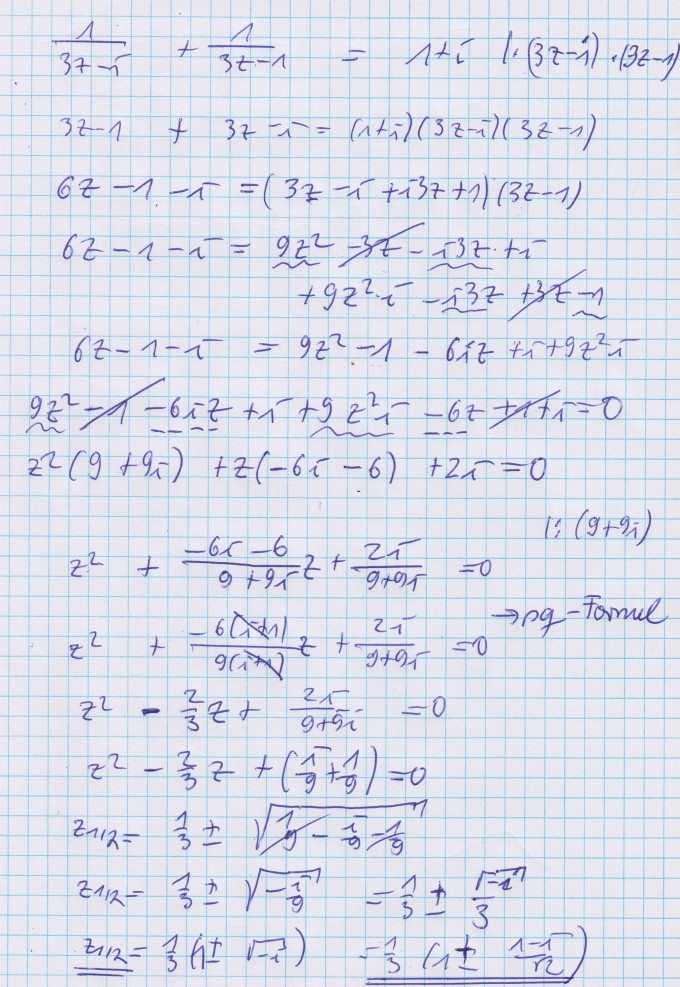 1/(3z-i) + 1/(3z-1) = 1+i |·(3z-i)·(3z-1)
3z-1 + 3z-i = (1+i)(3z-i)(3z-1)
6z-1-i = (3z-i+i3z+1)(3z-1)
6z-1-i = 9z² -3z -i3z +i
+9z²i -i3z +3z -1
6z-1-i = 9z²-1 -6iz +i +9z²i
9z² -1 -6iz +i +9z²i -6z +1+i=0
z²(9+9i) +z(-6i-6) +2i=0
|:(9+9i)
z² + (-6i-6)/(9+9i) z + 2i/(9+9i) =0
→pq-Formel
z² + -6(i+1)/9(i+1) z + 2i/(9+9i) =0
z² - 2/3 z + 2i/(9+9i) =0
z² - 2/3 z + (i/9 + 1/9) =0
z1/2= 1/3 ± √(1/9 - i/9 - 1/9)
z1/2= 1/3 ± √(-i/9) = 1/3 ± √-i/3
z1/2= 1/3 (1± √-i) = 1/3 (1± (1-i)/√2)